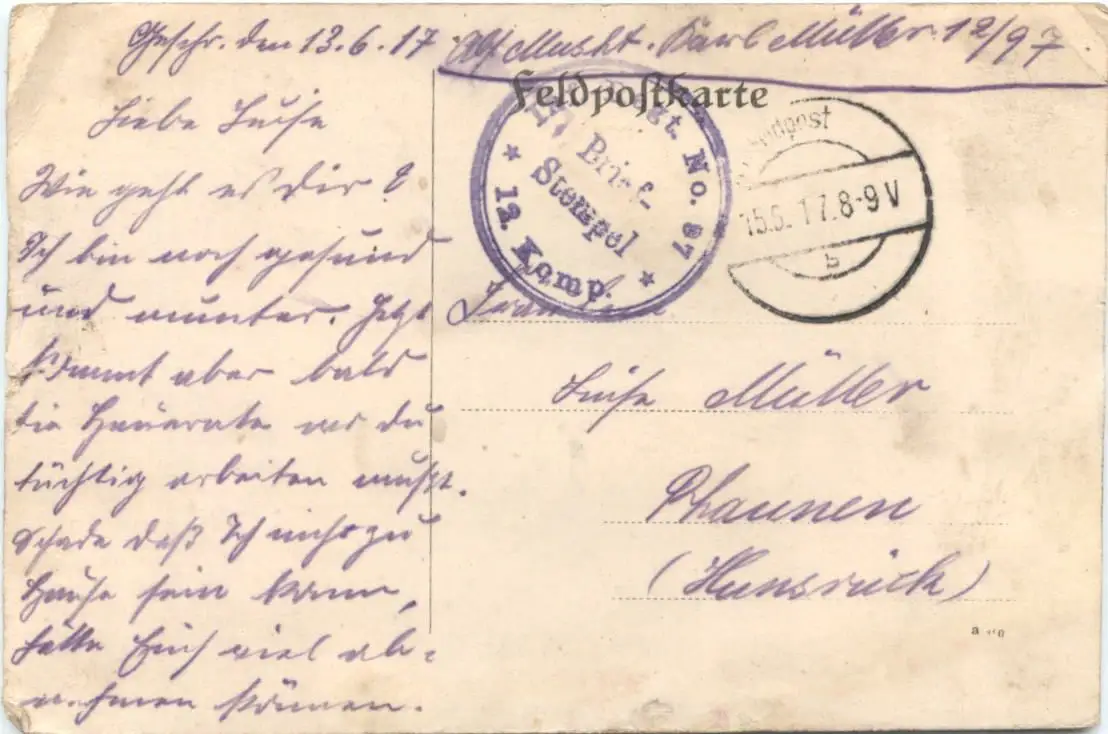 Geschr. den 13.6.17. Abs. Muskt. Karl Müller 12/97.
Feldpostkarte
Inf. Regt. No. 87
Brief-
Stempel
12. Komp.
Feldpost
15.6.17.8-9V
b
Liebe Luise
Wie geht es dir?
Ich bin noch gesund
und munter. Jetzt
kommt aber bald
die Heuernte wo du
tüchtig arbeiten mußt.
Schade daß Ich nicht zu
Hause sein kann,
hätte Euch viel ab-
nehmen können.
Fräulein
Luise Müller
Rhaunen
(Hunsrück)